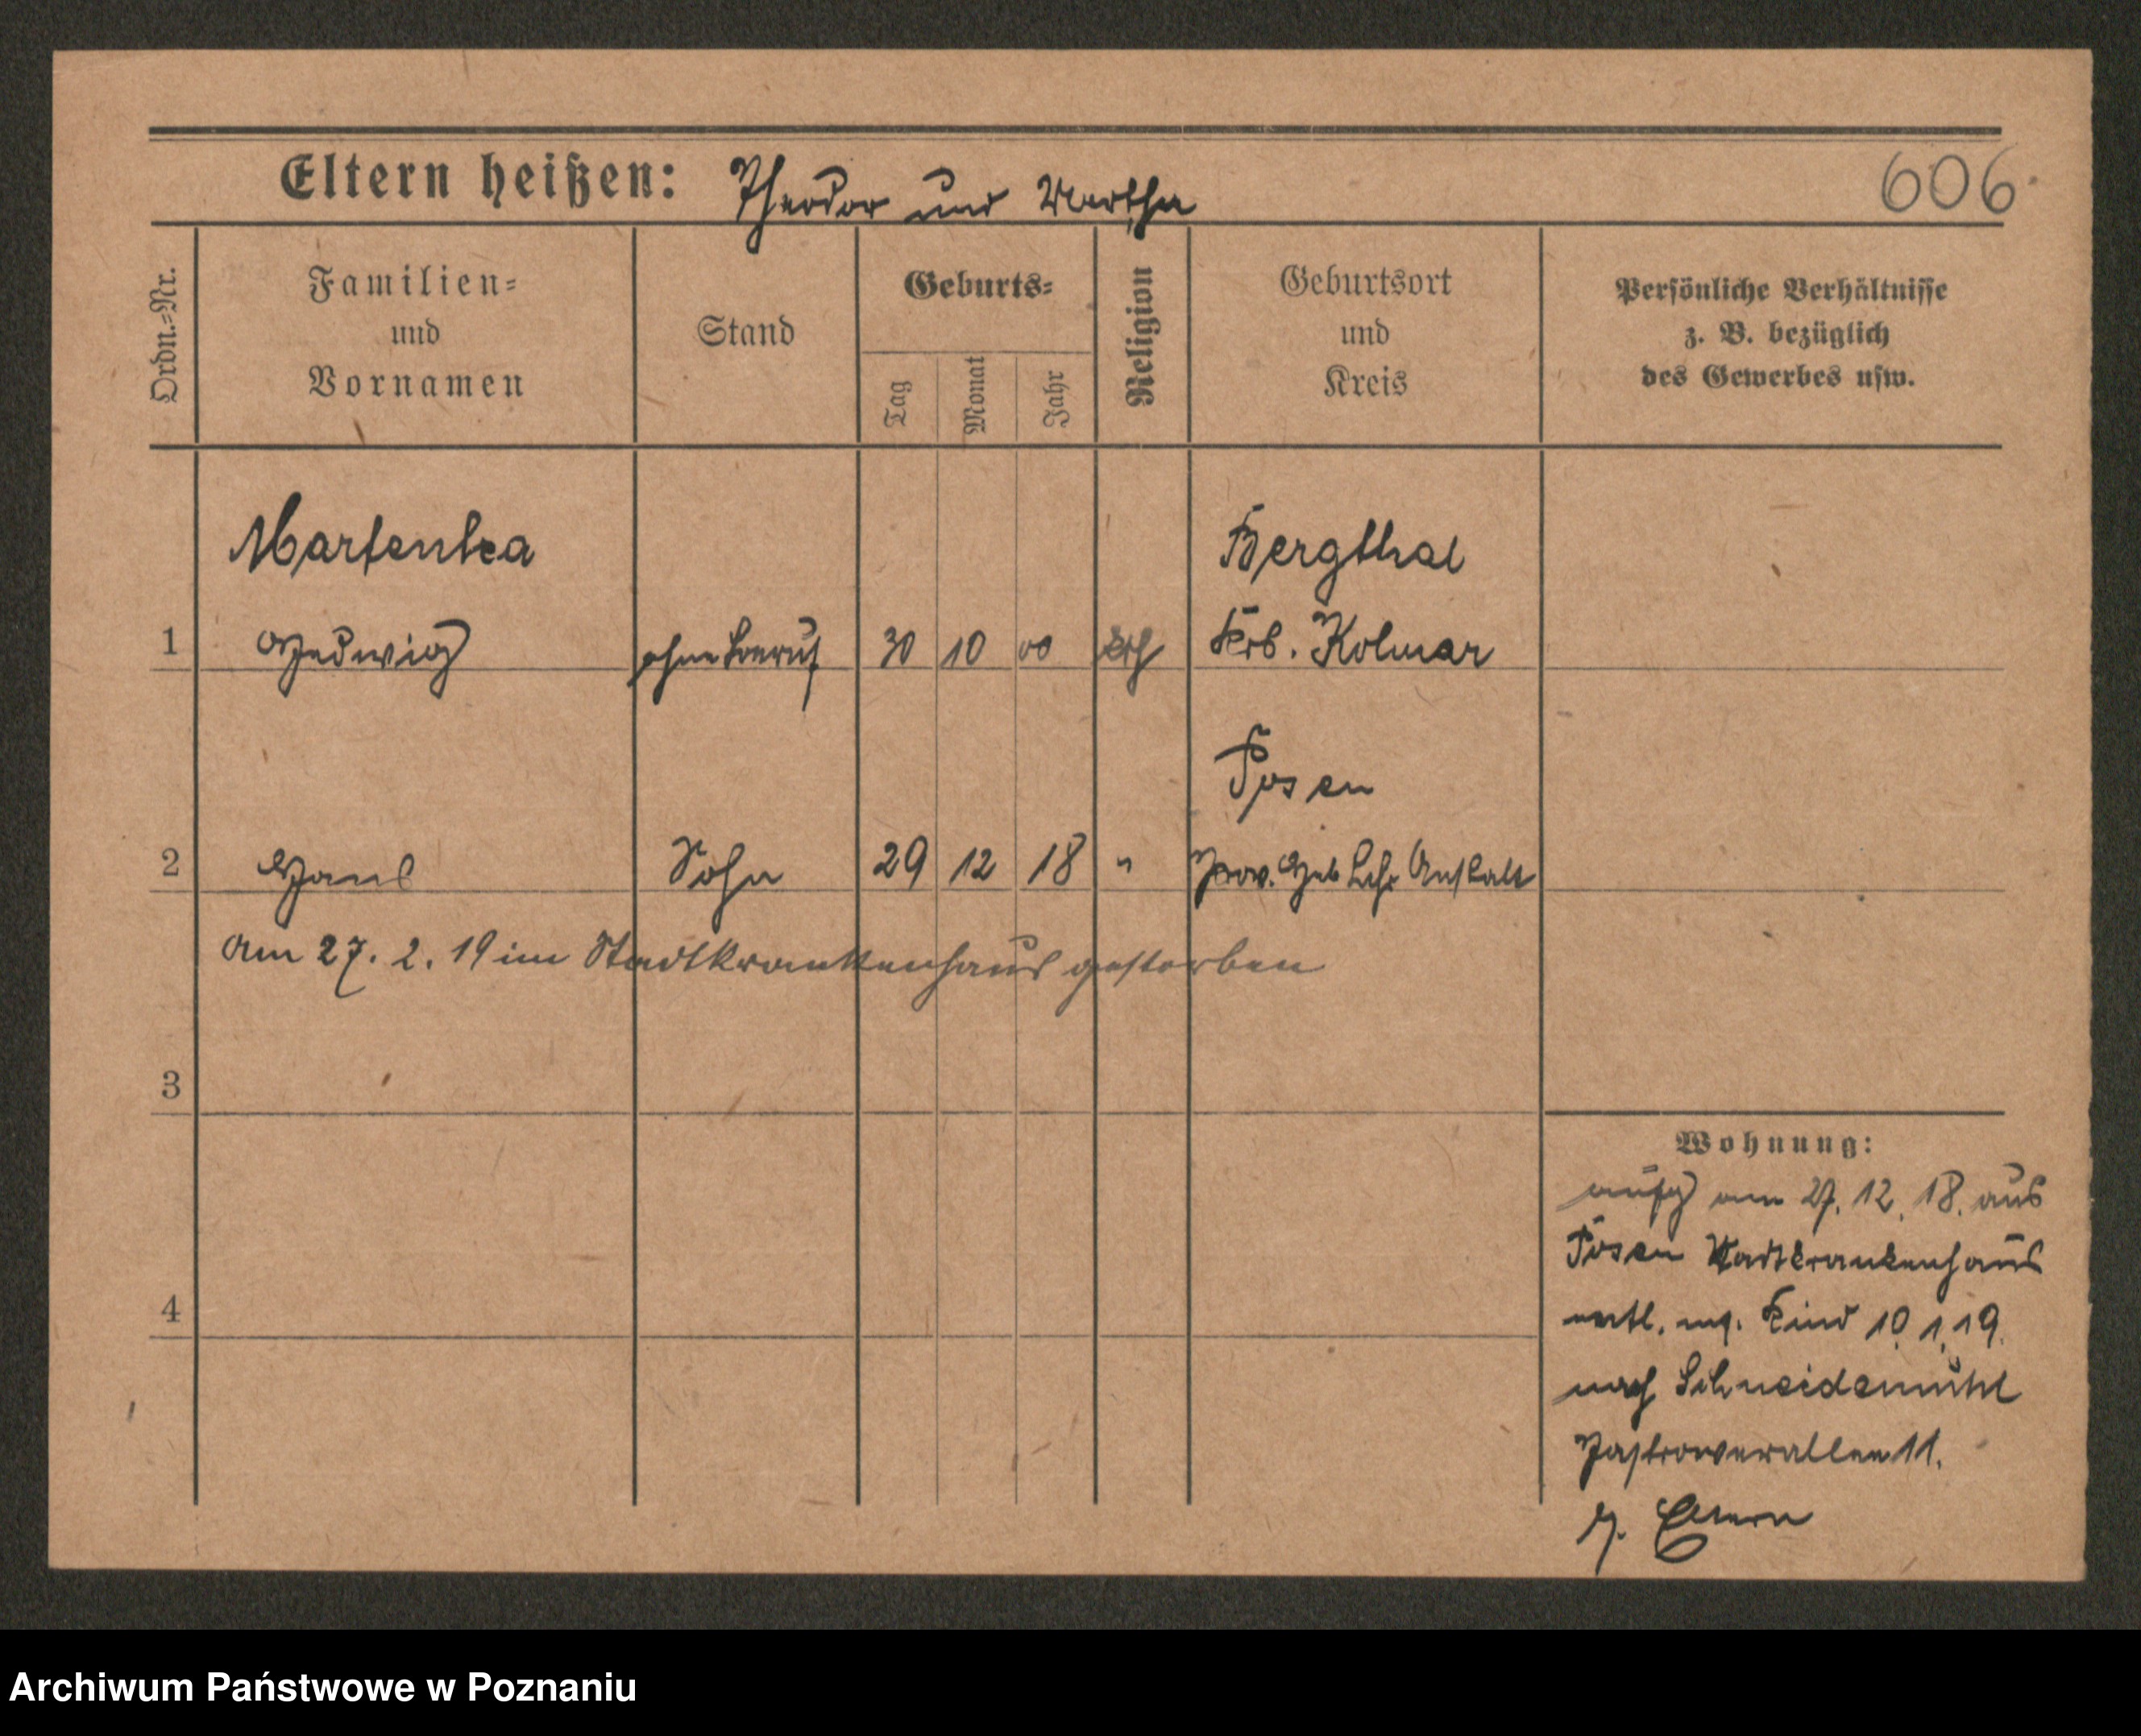 Eltern heißen: Theodor und Martha
606
Ordn.=Nr.
Familien=
und
Vornamen
Stand
Geburts=
Tag
Monat
Jahr
Religion
Geburtsort
und
Kreis
Persönliche Verhältnisse
z. B. bezüglich
des Gewerbes usw.
Martenka
Bergthal
1 Hedwig ohne Beruf 30 10 00 Krb. Kolmar
Posen
2 Hans Sohn 29 12 18 " Prov. Heb Lehr Anstalt
Am 27. 2. 19 im Stadtkrankenhaus gestorben
3
Wohnung:
am 27. 12. 18. aus
Posen Stadtkrankenhaus
entl. Kind 10. 1. 19.
4
nach Schneidemühl
Jastrowerallee 11.
z. Eltern
Archiwum Państwowe w Poznaniu